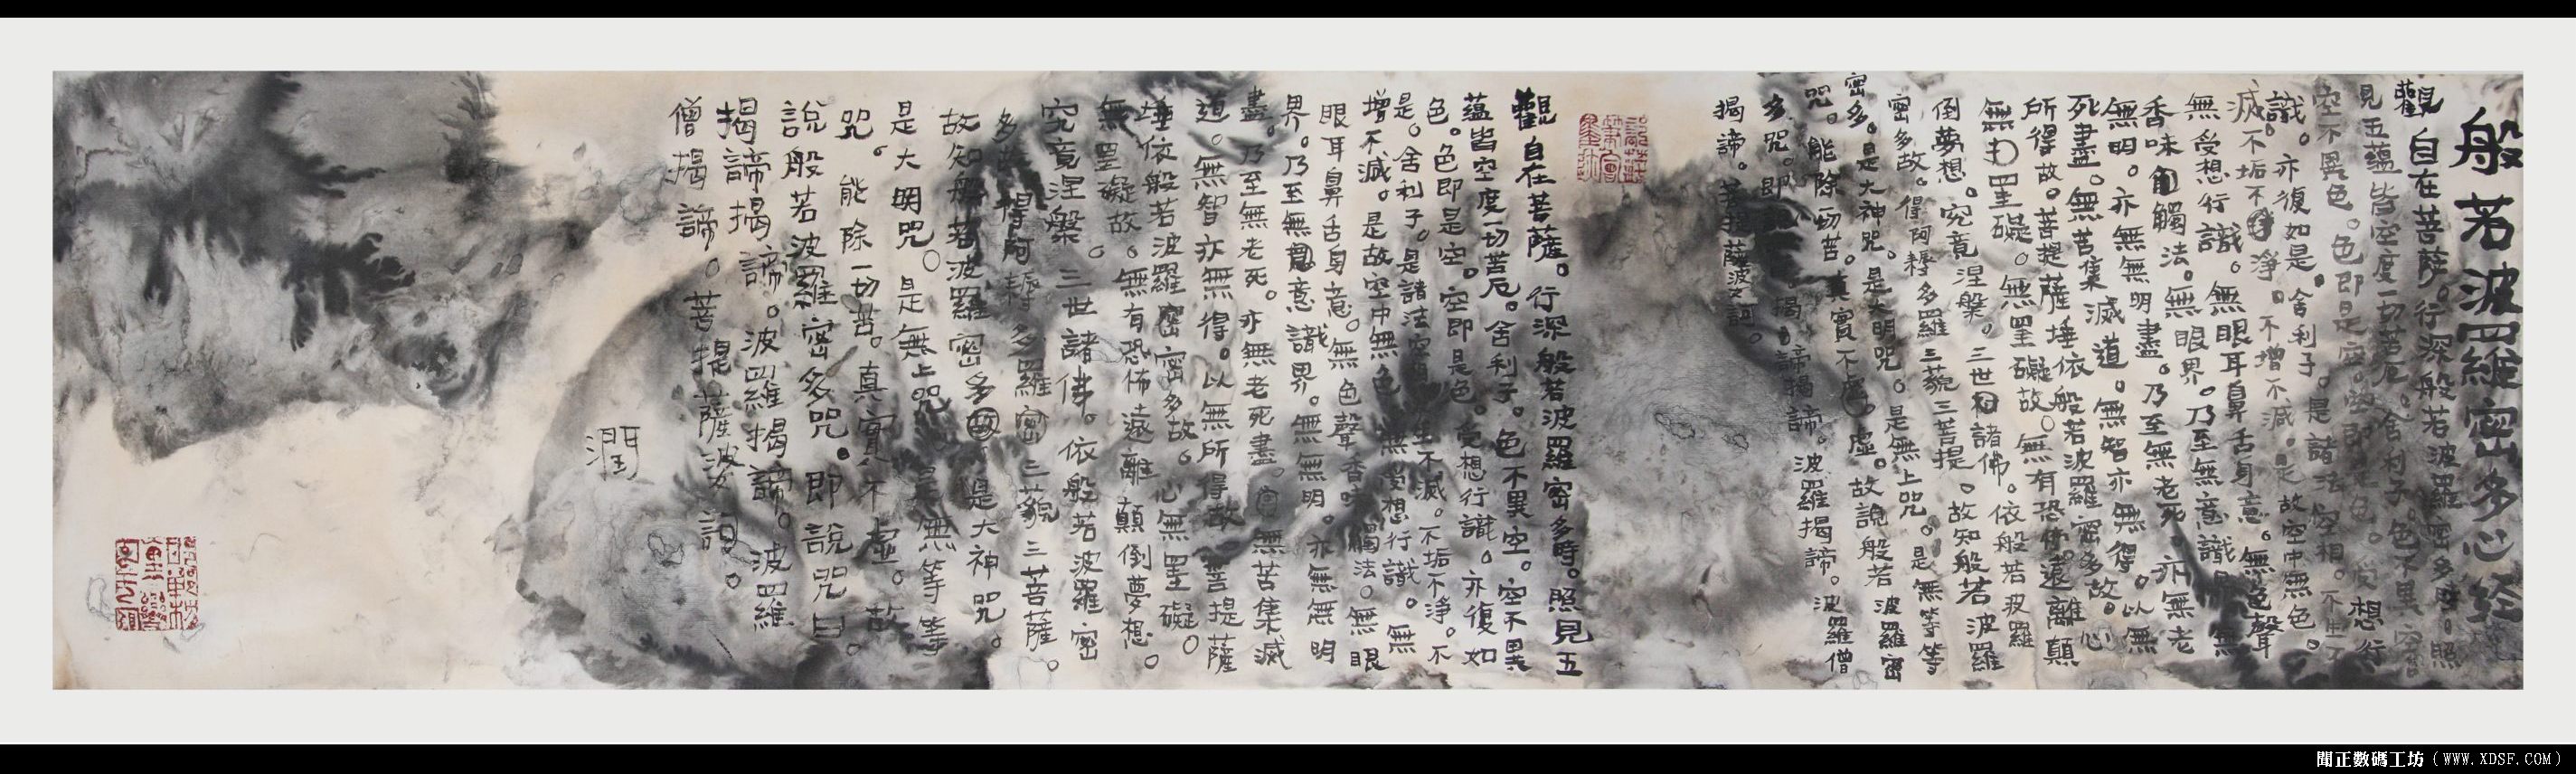 般若波羅密多心经
觀自在菩薩。行深般若波羅密多時。照
見五蘊皆空度一切苦厄。舍利子。色不異空
空不異色。色即是空。空即是色。受想行
識。亦復如是。舍利子。是諸法空相。不生不
滅。不垢不淨。不增不減。是故空中無色。
無受想行識。無眼耳鼻舌身意。無色聲
香味觸法。無眼界。乃至無意識界。無
無明。亦無無明盡。乃至無老死。亦無老
死盡。無苦集滅道。無智亦無得。以無
所得故。菩提薩埵依般若波羅密多故。心
無罣礙。無罣礙故。無有恐佈。遠離顛
倒夢想。究竟涅槃。三世諸佛。依般若波羅
密多故。得阿耨多羅三藐三菩提。故知般若波羅
密多。是大神咒。是大明咒。是無上咒。是無等等
咒。能除一切苦。真實不虛。故說般若波羅密
多咒。即揭諦揭諦。波羅揭諦。波羅僧
揭諦。菩提薩波訶。
觀自在菩薩。行深般若波羅密多時。照見五
蘊皆空度一切苦厄。舍利子。色不異空。空不異
色。色即是空。空即是色。受想行識。亦復如
是。舍利子。是諸法空相。不生不滅。不垢不淨。不
增不減。是故空中無色。無受想行識。無
眼耳鼻舌身意。無色聲香味觸法。無眼
界。乃至無意識界。無無明。亦無無明
盡。乃至無老死。亦無老死盡。無苦集滅
道。無智亦無得。以無所得故。菩提薩
埵依般若波羅密多故。心無罣礙。
無罣礙故。無有恐佈。遠離顛倒夢想。
究竟涅槃。三世諸佛。依般若波羅密
多故。得阿耨多羅三藐三菩薩。
故知般若波羅密多是大神咒。
是大明咒。是無上咒。是無等等
咒。能除一切苦。真實不虛。故
說般若波羅密多咒。即說咒曰。
揭諦揭諦。波羅揭諦。波羅
僧揭諦。菩提薩波訶。
潤
聞正數碼工坊（WWW.XDSF.COM）